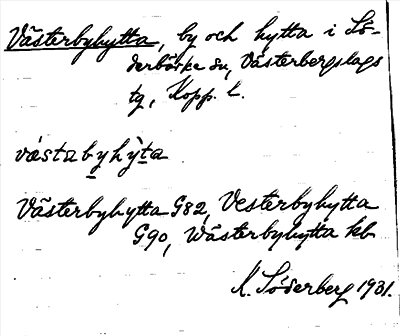 Västerbyhytta, by och hytta i Sö-
derbärke sn, Västerbergslags
tg, Kopp. l.
västabyhyta
Västerbyhytta G82, Vesterbyhytta
G90, Wästerbyhytta kb
K. Söderberg 1931.